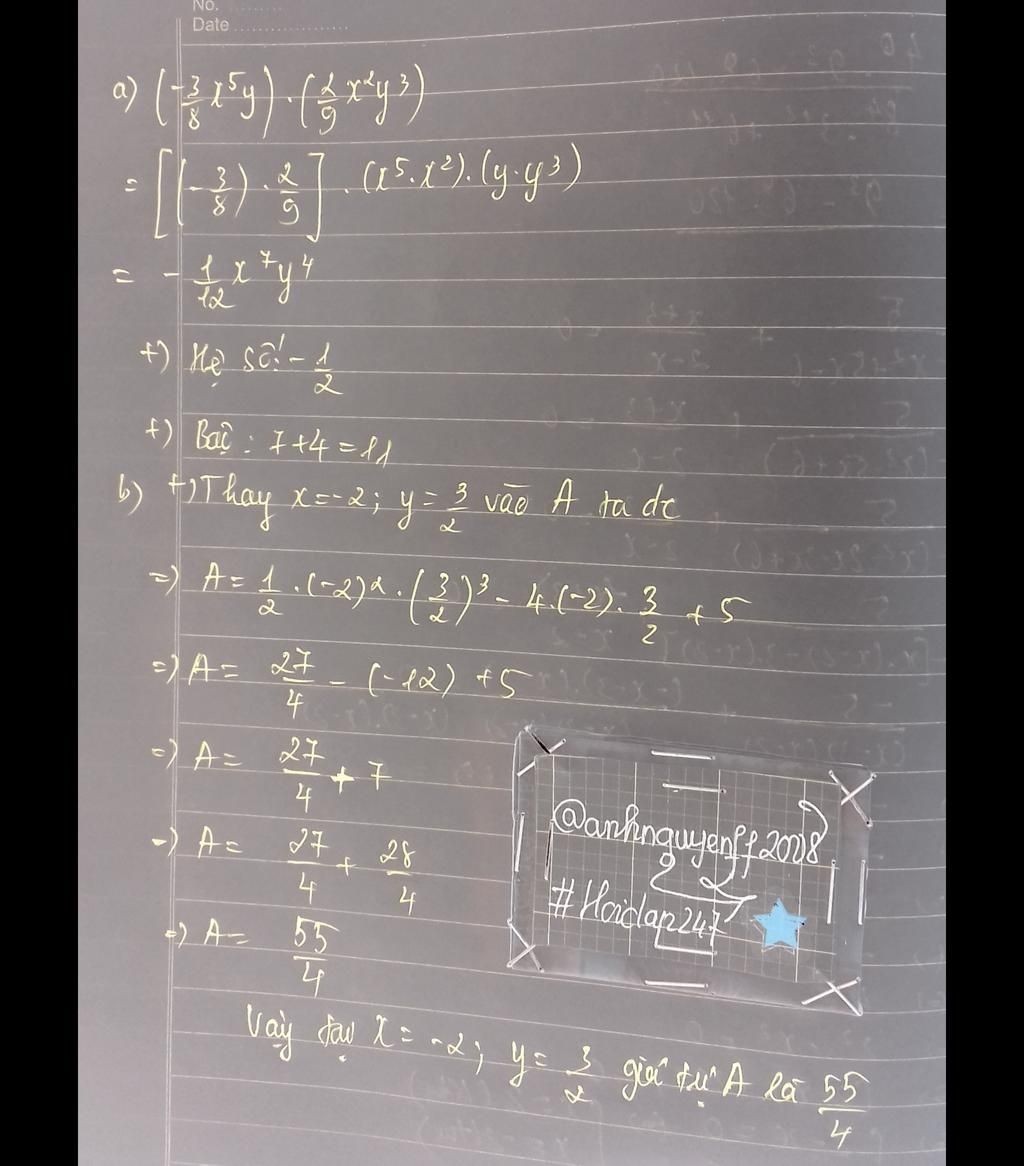 No. .........
Date ..................
a) (-3/8 x⁵y) . (2/9 x²y³)
= [(-3/8) . 2/9] . (x⁵.x²).(y.y³)
= -1/12 x⁷y⁴
+) Hệ số: -1/2
+) Bậc: 7+4=11
b) +) Thay x=-2; y=3/2 vào A ta dc
=) A= 1/2 .(-2)² . (3/2)³ - 4.(-2). 3/2 + 5
=) A= 27/4 - (-12) +5
=) A= 27/4 + 7
=) A= 27/4 + 28/4
=) A= 55/4
@anhnguyenff2008
#Hoidap247
Vậy tại x= -2; y= 3/2 giá trị A là 55/4